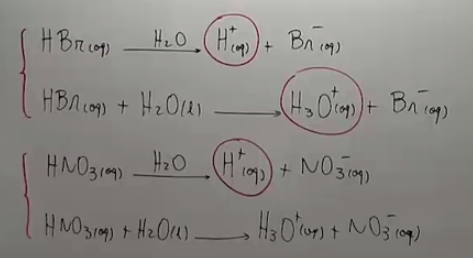 HBr(aq) —H₂O→ H⁺(aq) + Br⁻(aq)
HBr(aq) + H₂O(l) → H₃O⁺(aq) + Br⁻(aq)
HNO₃(aq) —H₂O→ H⁺(aq) + NO₃⁻(aq)
HNO₃(aq) + H₂O(l) → H₃O⁺(aq) + NO₃⁻(aq)